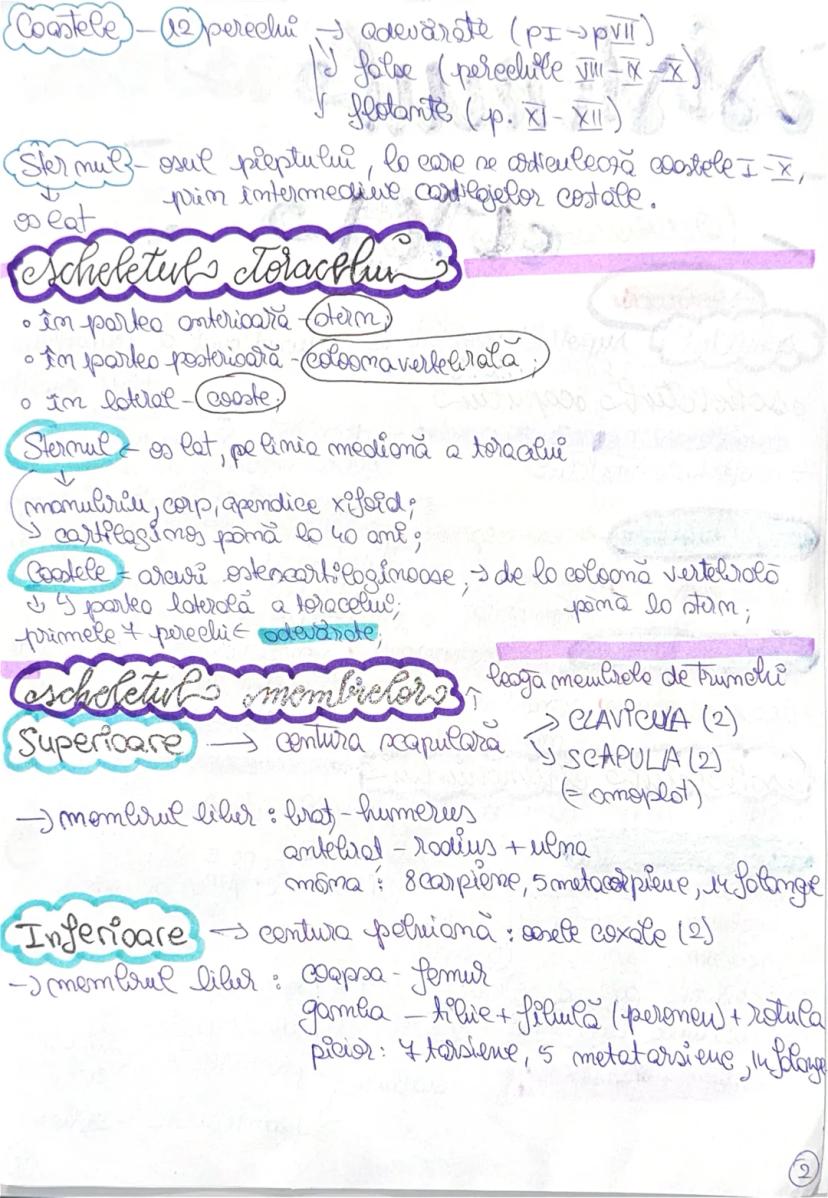 Coastele – 12 perechi → adevărate (pI → pVII)
↳ false (perechile VIII – IX – X)
↳ flotante (p. XI – XII)
Sternul – osul pieptului, la care se articulează coastele I – X,
↓ prin intermediul cartilajelor costale.
os lat
scheletul toracelui
◦ în partea anterioară – stern;
◦ în partea posterioară – coloana vertebrală;
◦ în lateral – coaste;
Sternul – os lat, pe linia mediană a toracelui
↓
manubriu, corp, apendice xifoid;
↳ cartilaginos până la 40 ani;
Coastele = arcuri osteocartilaginoase; → de la coloană vertebrală
↓ ↳ partea laterală a toracelui; până la stern;
primele 7 perechi = adevărate;
scheletul membrelor ↑ leagă membrele de trunchi
Superioare → centura scapulară → CLAVICULA (2)
↘ SCAPULA (2)
(= omoplat)
→ membrul liber : braț – humerus
antebraț – radius + ulna
mâna : 8 carpiene, 5 metacarpiene, 14 falange
Inferioare → centura pelviană : oasele coxale (2)
→ membrul liber : coapsa – femur
gamba – tibie + fibulă (peroneu) + rotula
picior : 7 tarsiene, 5 metatarsiene, 14 falange
2